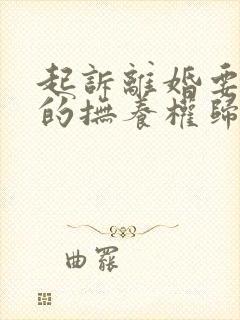 起訴離婚要
的撫養權歸
曲罷